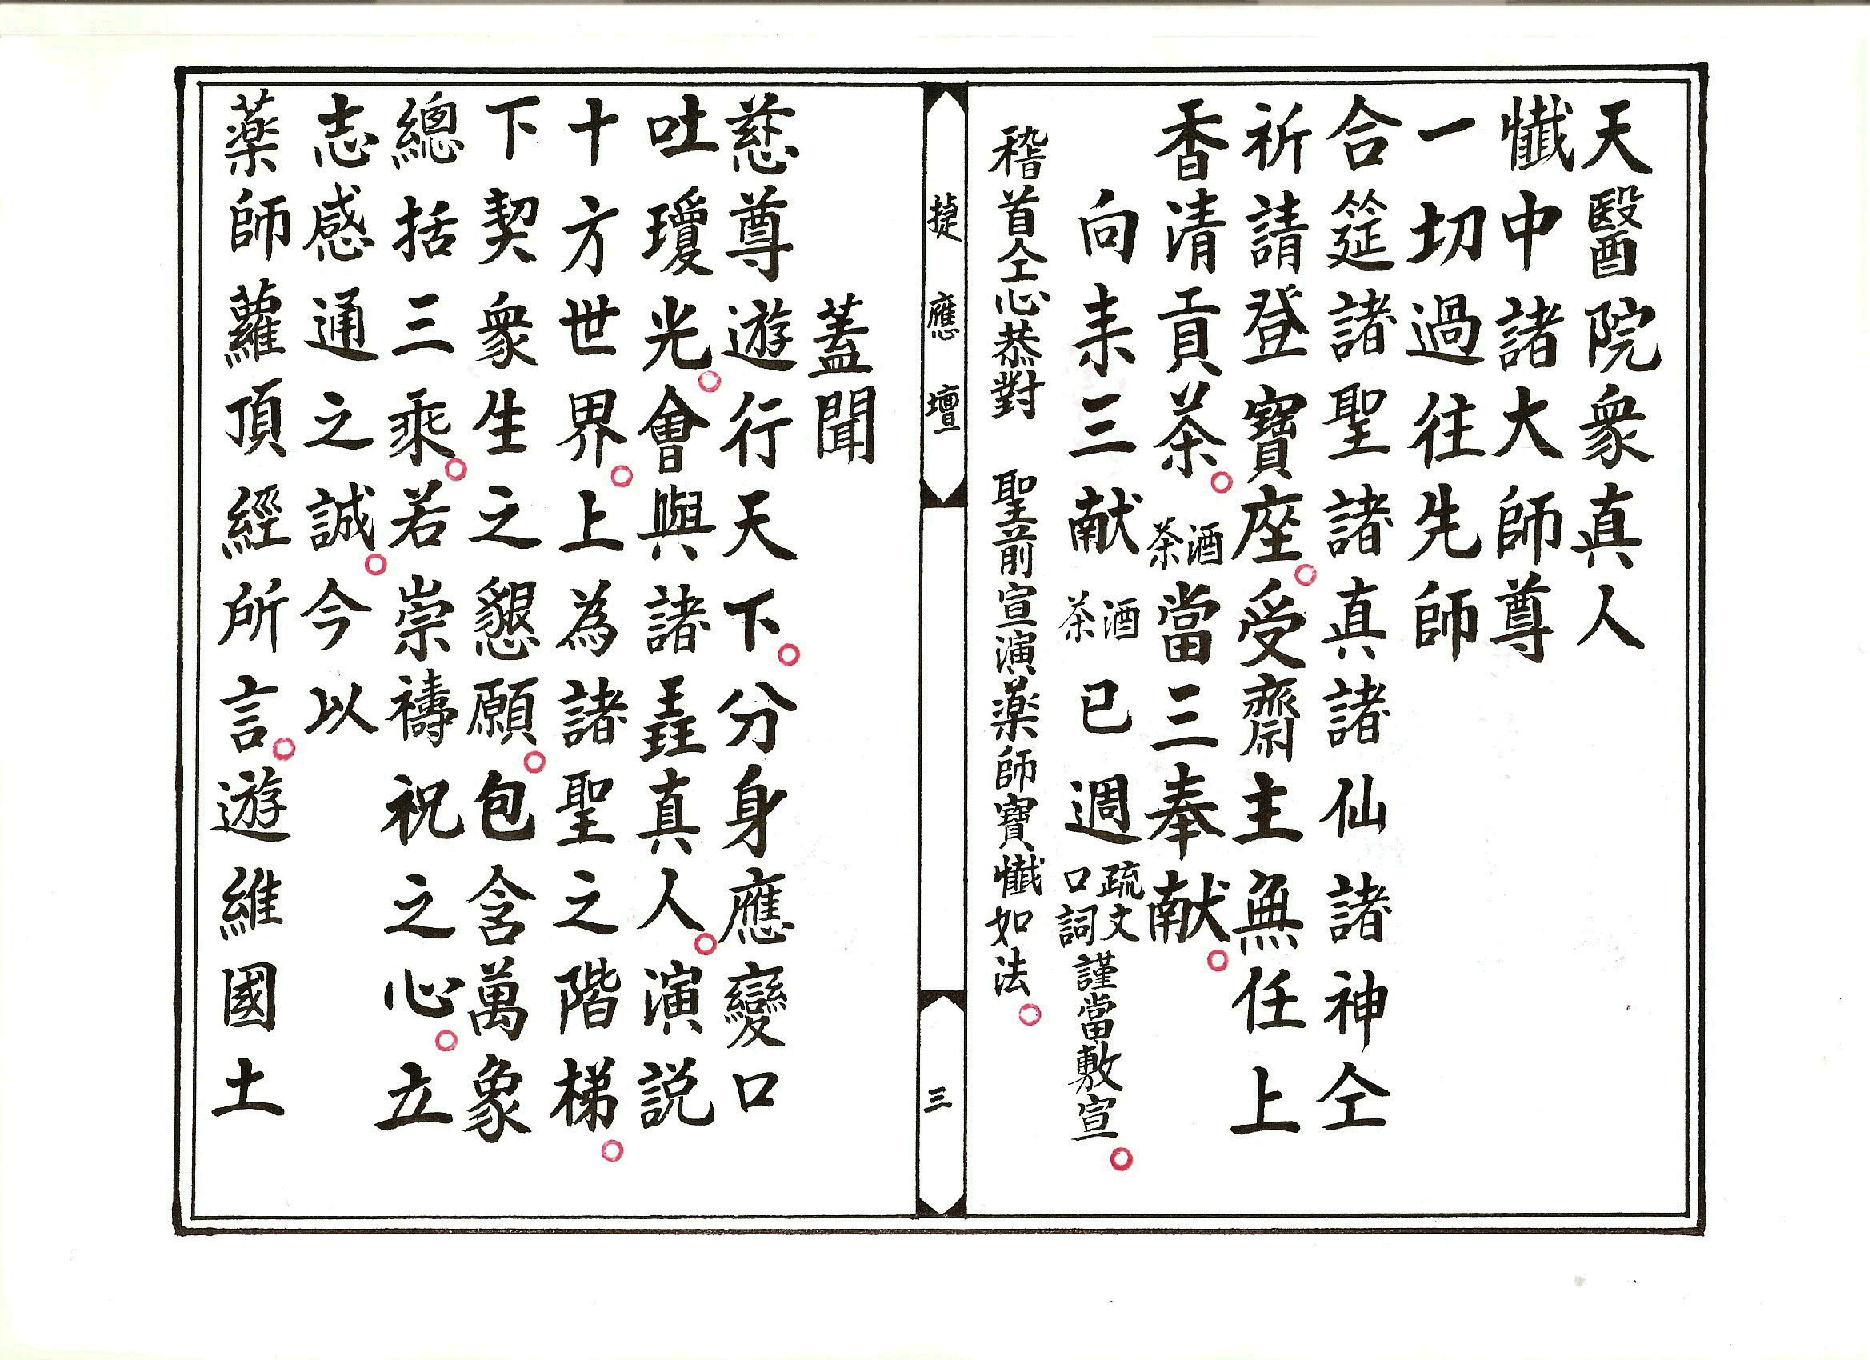 天醫院衆真人
懺中諸大師尊
一切過往先師
合筵諸聖諸真諸仙諸神仝
祈請登寶座○受齋主無任上
香清貢茶○酒茶當三奉献○
向耒三献酒茶已週疏文口詞謹當敷宣○
稽首仝心恭對 聖前宣演薬師寶懺如法○
捷應壇
三
蓋聞
慈尊遊行天下○分身應變口
吐瓊光○會與諸真人○演説
十方世界○上為諸聖之階梯○
下契衆生之懇願○包含萬象
總括三乘○若崇禱祝之心○立
志感通之誠○今以
薬師蘿頂經所言○遊維國土